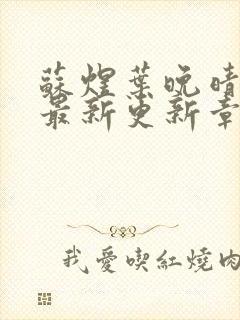 蘇煜葉晚晴
最新更新章
我愛喫紅燒肉